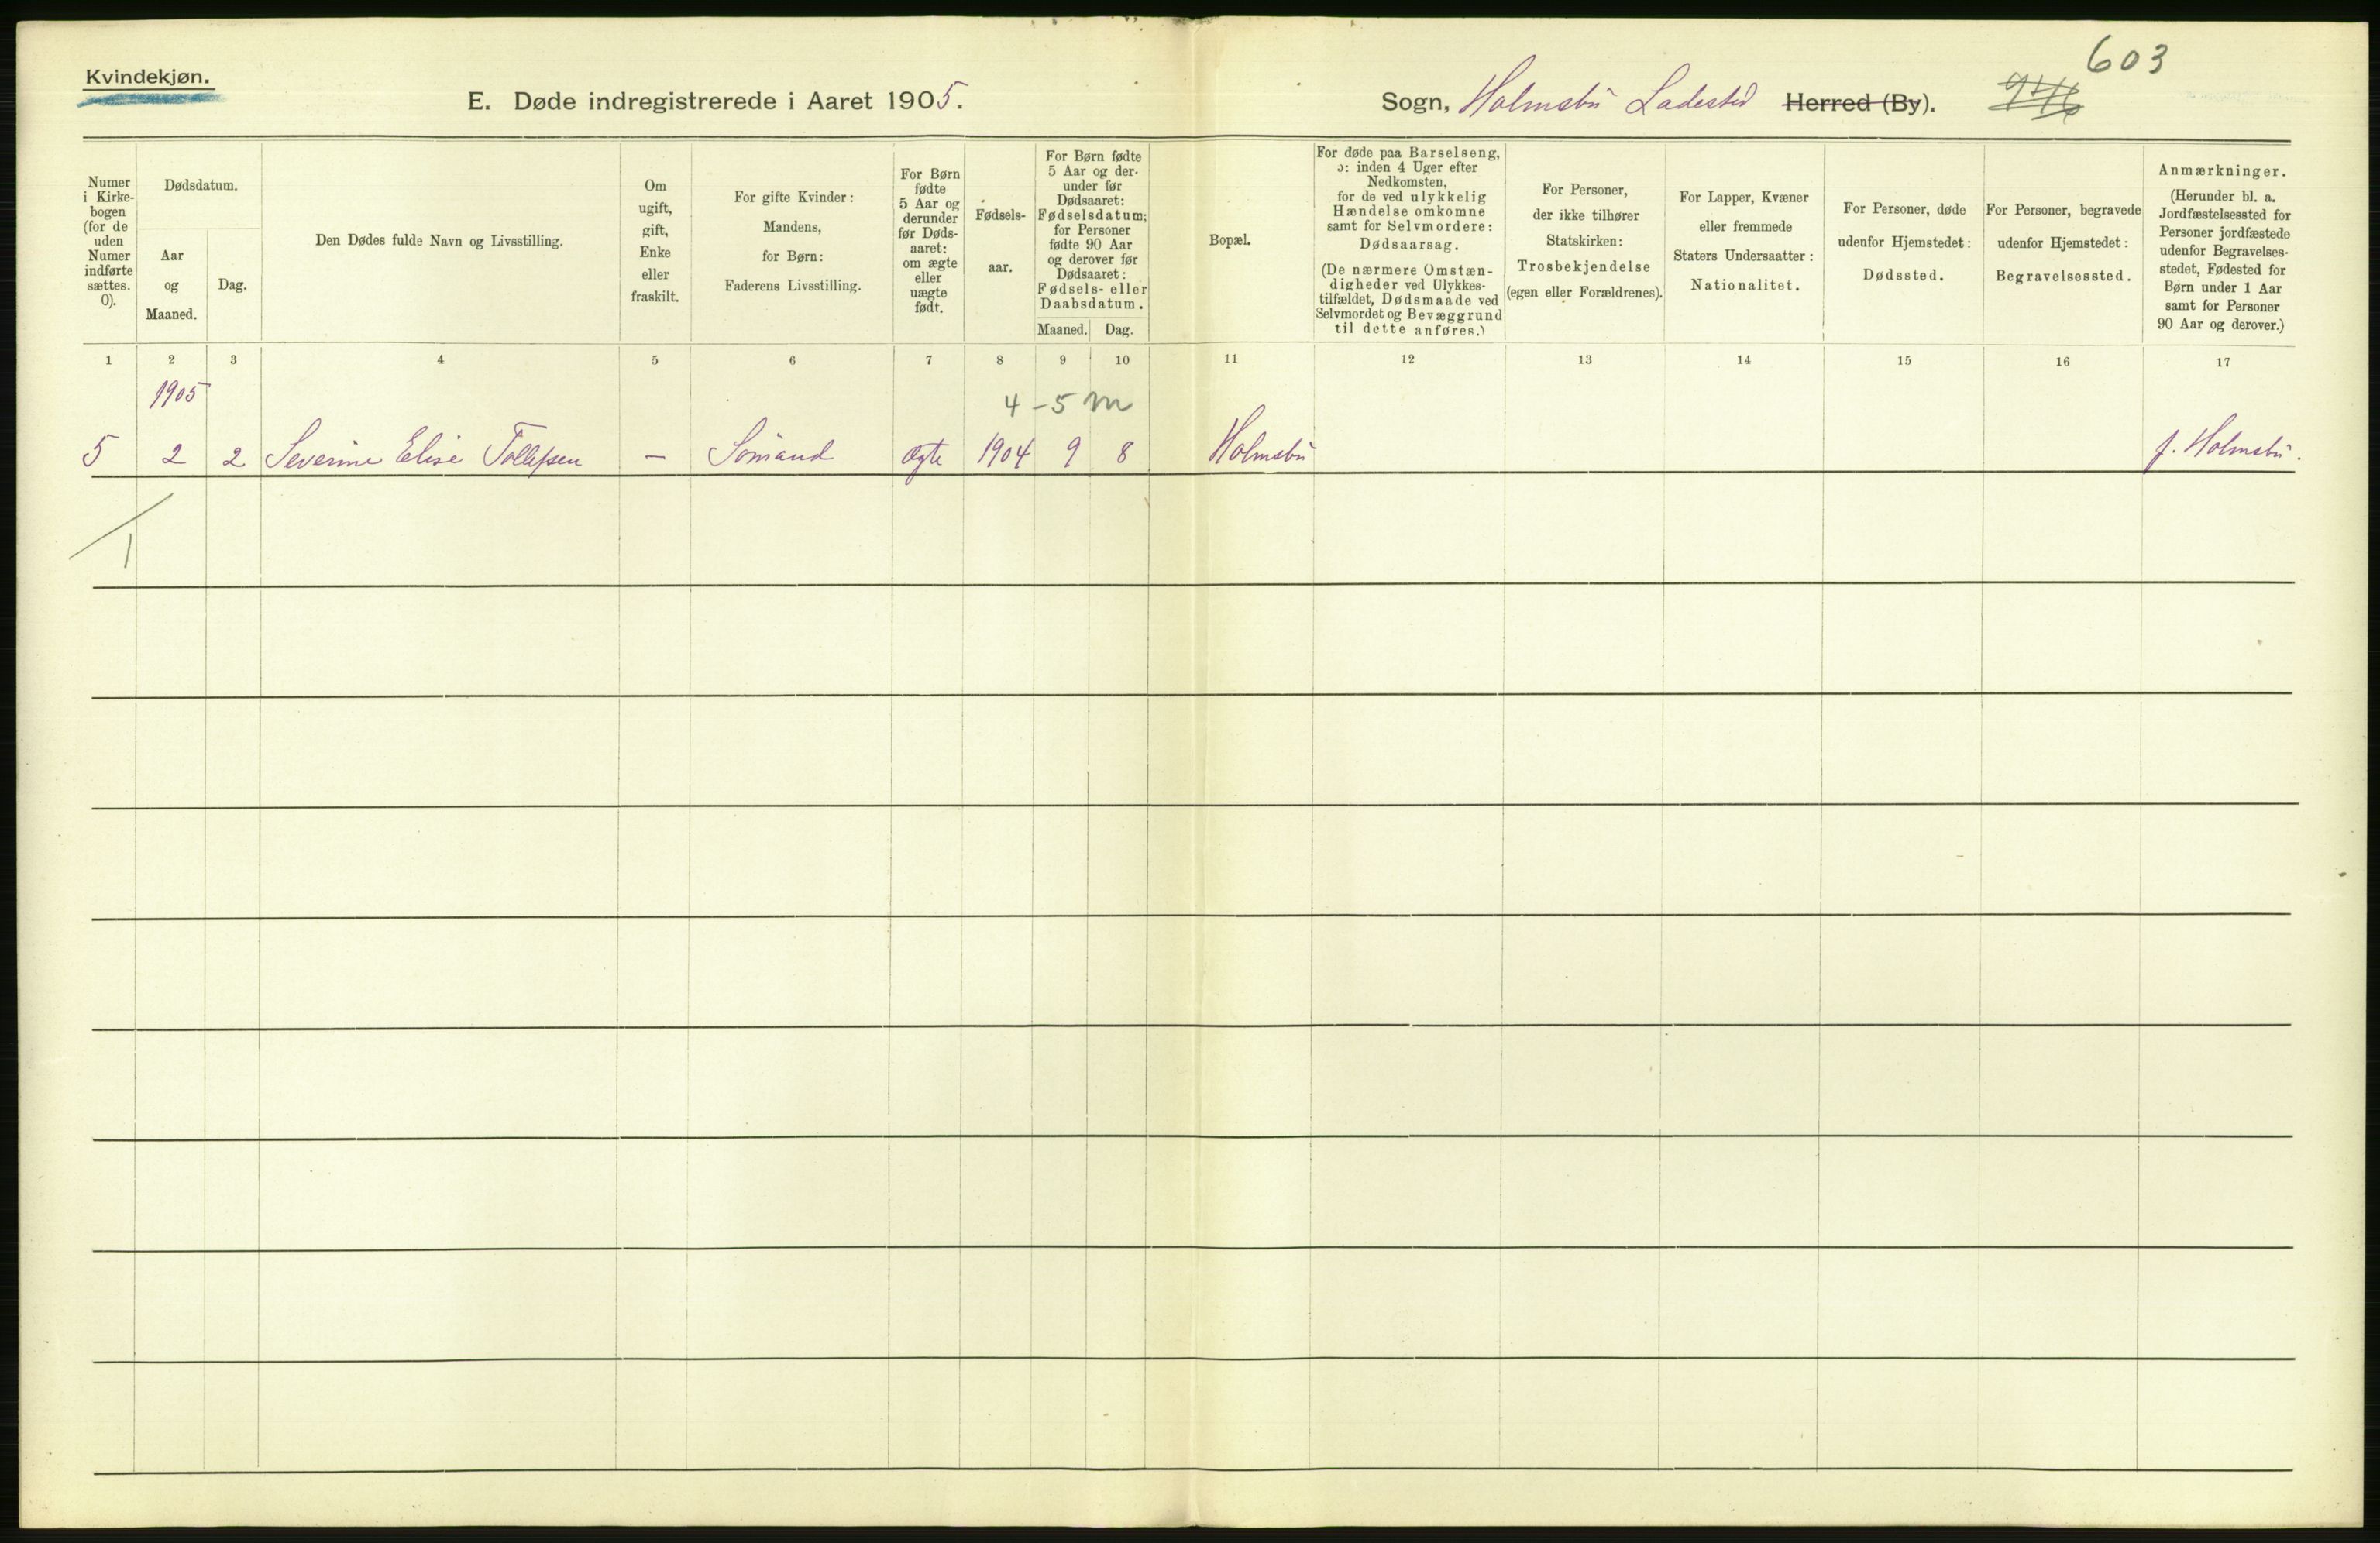 Kvindekjøn.
603
E. Døde indregistrerede i Aaret 1905.
Sogn, Holmsbu Ladested Herred (By).
Numer
i Kirke-
bogen
(for de
uden
Numer
indførte
sættes.
0).
Dødsdatum.
Aar
og
Maaned.
Dag.
Den Dødes fulde Navn og Livsstilling.
Om
ugift,
gift,
Enke
eller
fraskilt.
For gifte Kvinder:
Mandens,
for Børn:
Faderens Livsstilling.
For Børn
fødte
5 Aar og
derunder
før Døds-
aaret:
om ægte
eller
uægte
født.
Fødsels-
aar.
For Børn fødte
5 Aar og der-
under før
Dødsaaret:
Fødselsdatum;
for Personer
fødte 90 Aar
og derover før
Dødsaaret:
Fødsels- eller
Daabsdatum.
Maaned. Dag.
Bopæl.
For døde paa Barselseng,
ɔ: inden 4 Uger efter
Nedkomsten,
for de ved ulykkelig
Hændelse omkomne
samt for Selvmordere:
Dødsaarsag.
(De nærmere Omstæn-
digheder ved Ulykkes-
tilfældet, Dødsmaade ved
Selvmordet og Bevæggrund
til dette anføres.)
For Personer,
der ikke tilhører
Statskirken:
Trosbekjendelse
(egen eller Forældrenes).
For Lapper, Kvæner
eller fremmede
Staters Undersaatter:
Nationalitet.
For Personer, døde
udenfor Hjemstedet:
Dødssted.
For Personer, begravede
udenfor Hjemstedet:
Begravelsessted.
Anmærkninger.
(Herunder bl. a.
Jordfæstelsessted for
Personer jordfæstede
udenfor Begravelses-
stedet, Fødested for
Børn under 1 Aar
samt for Personer
90 Aar og derover.)
1 2 3 4 5 6 7 8 9 10 11 12 13 14 15 16 17
1905
4-5 m
5 2 2 Severine Elise Tollefsen — Sømand Ægte 1904 9 8 Holmsbu f. Holmsbu.
1